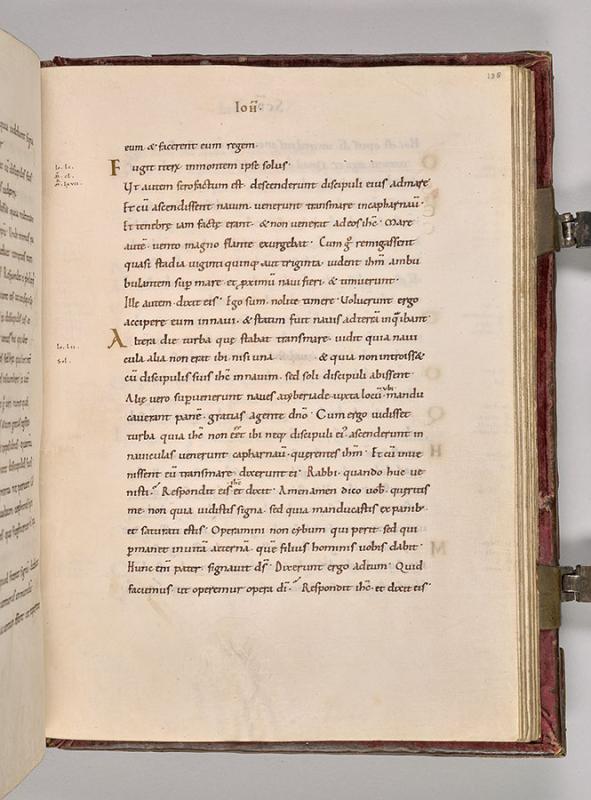 188
Ioħ·
eum & facerent eum regem·
Fugit iterx inmontem ipse solus·
Vt autem serofactum est· descenderunt discipuli eius admare·
Et cū ascendissent nauim· uenerunt transmare incapharnaū·
Et tenebrę iam factę erant· & non uenerat adeos ihc̄· Mare
autē· uento magno flante exurgebat· Cum g̊ remigassent
quasi stadia uiginti quinq; aut triginta· uident ihm̄ ambu
bulantem sup mare· et p̱ximū nauifieri· & timuerunt·
Ille autem· dixit eis· Ego sum· nolite timere· Voluerunt ergo
accipere eum innaui· & statim fuit nauis adterrā inquā ibant·
Altera die turba quę stabat transmare· uidit quia naui
cula alia non erat ibi nisi una· & quia non introiss&
cū discipulis suis ihc̄ innauim· sed soli discipuli abissent·
Alię uero supuenerunt naues atyberiade iuxta locū ubi mandu
cauerant panē· gratias agente dnō· Cum ergo uidisset
turba quia ihc̄ non eēt ibi neq; discipuli ei᾽· ascenderunt in
nauiculas uenerunt capharnaū· querentes ihm̄· Et cū inue
nissent eū transmare dixerunt ei· Rabbi· quando huc ue
nisti· Respondit eis ihc̄ et dixit· Amenamen dico uob̄· queritis
me· non quia uidistis signa· sed quia manducastis ex panib;
et saturati estis· Operamini non cybum qui perit sed qui
pmanet inuitā aeternā· quē filius hominis uobis dabit·
Hunc enī pater signauit ds̄· Dixerunt ergo adeum· Quid
faciemus· ut operemur opera dī· Respondit ihc̄· et dixit eis·